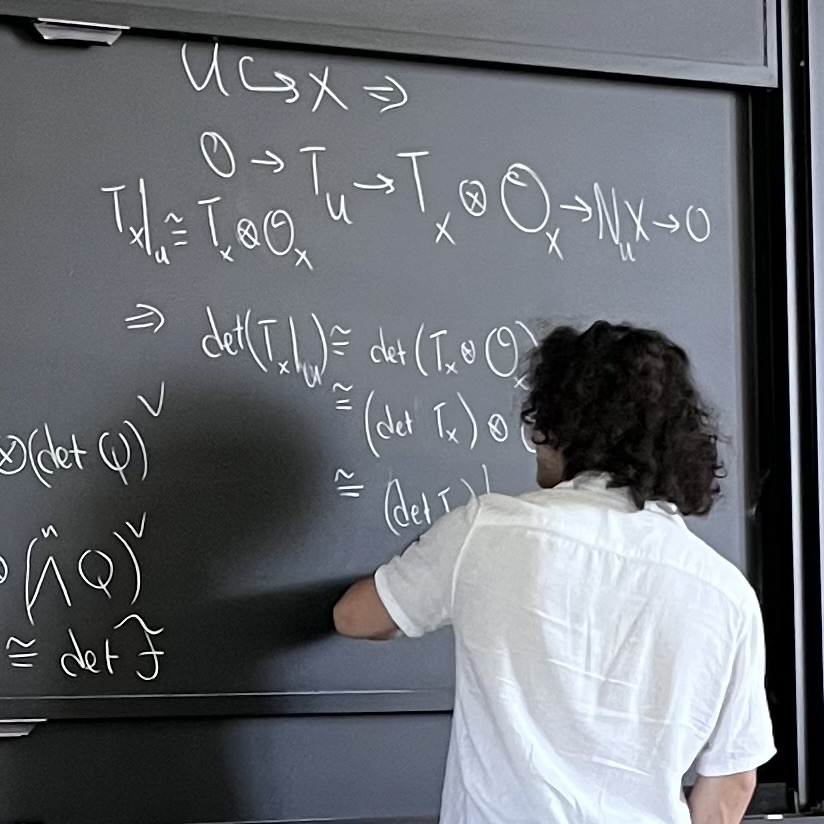 U ↪ X ⇒
0 → T_u → T_x ⊗ O_x → N_u X → 0
T_x|_u ≅ T_x ⊗ O_x
⇒ det(T_x|_u) ≅ det(T_x ⊗ O_x)
≅ (det T_x) ⊗
≅ (det T
⊗(det Q)^∨
(∧^n Q)^∨
≅ det F̃